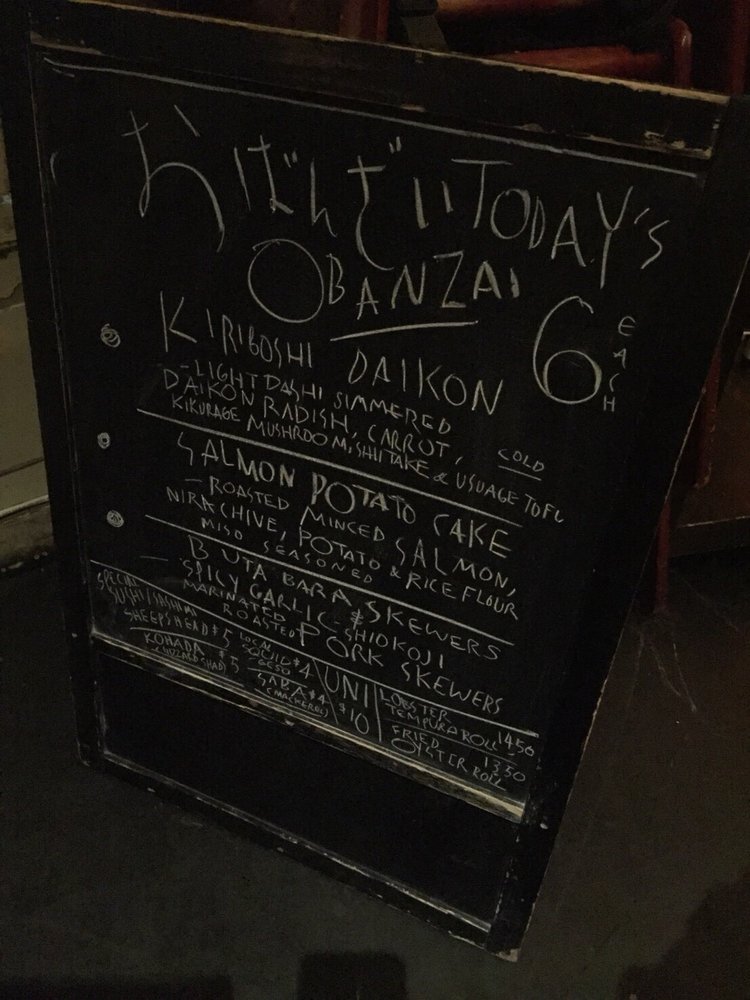 おばんざい TODAY'S
OBANZAI
6 EACH
KIRIBOSHI DAIKON
- LIGHT DASHI SIMMERED
DAIKON RADISH, CARROT,
KIKURAGE MUSHROOM, SHIITAKE & USUAGE TOFU
COLD
SALMON POTATO CAKE
- ROASTED MINCED SALMON,
NIRA CHIVE, POTATO & RICE FLOUR
MISO SEASONED
BUTA BARA SKEWERS
- SPICY GARLIC & SHIOKOJI
MARINATED
ROASTED PORK SKEWERS
SPECIAL
SUSHI/SASHIMI
SHEEPSHEAD $5
KOHADA $5
(GIZZARD SHAD)
LOCAL
SQUID $4
GESO
SABA $4
(MACKEREL)
UNI
$10
LOBSTER
TEMPURA ROLL 1450
FRIED
OYSTER ROLL 1350